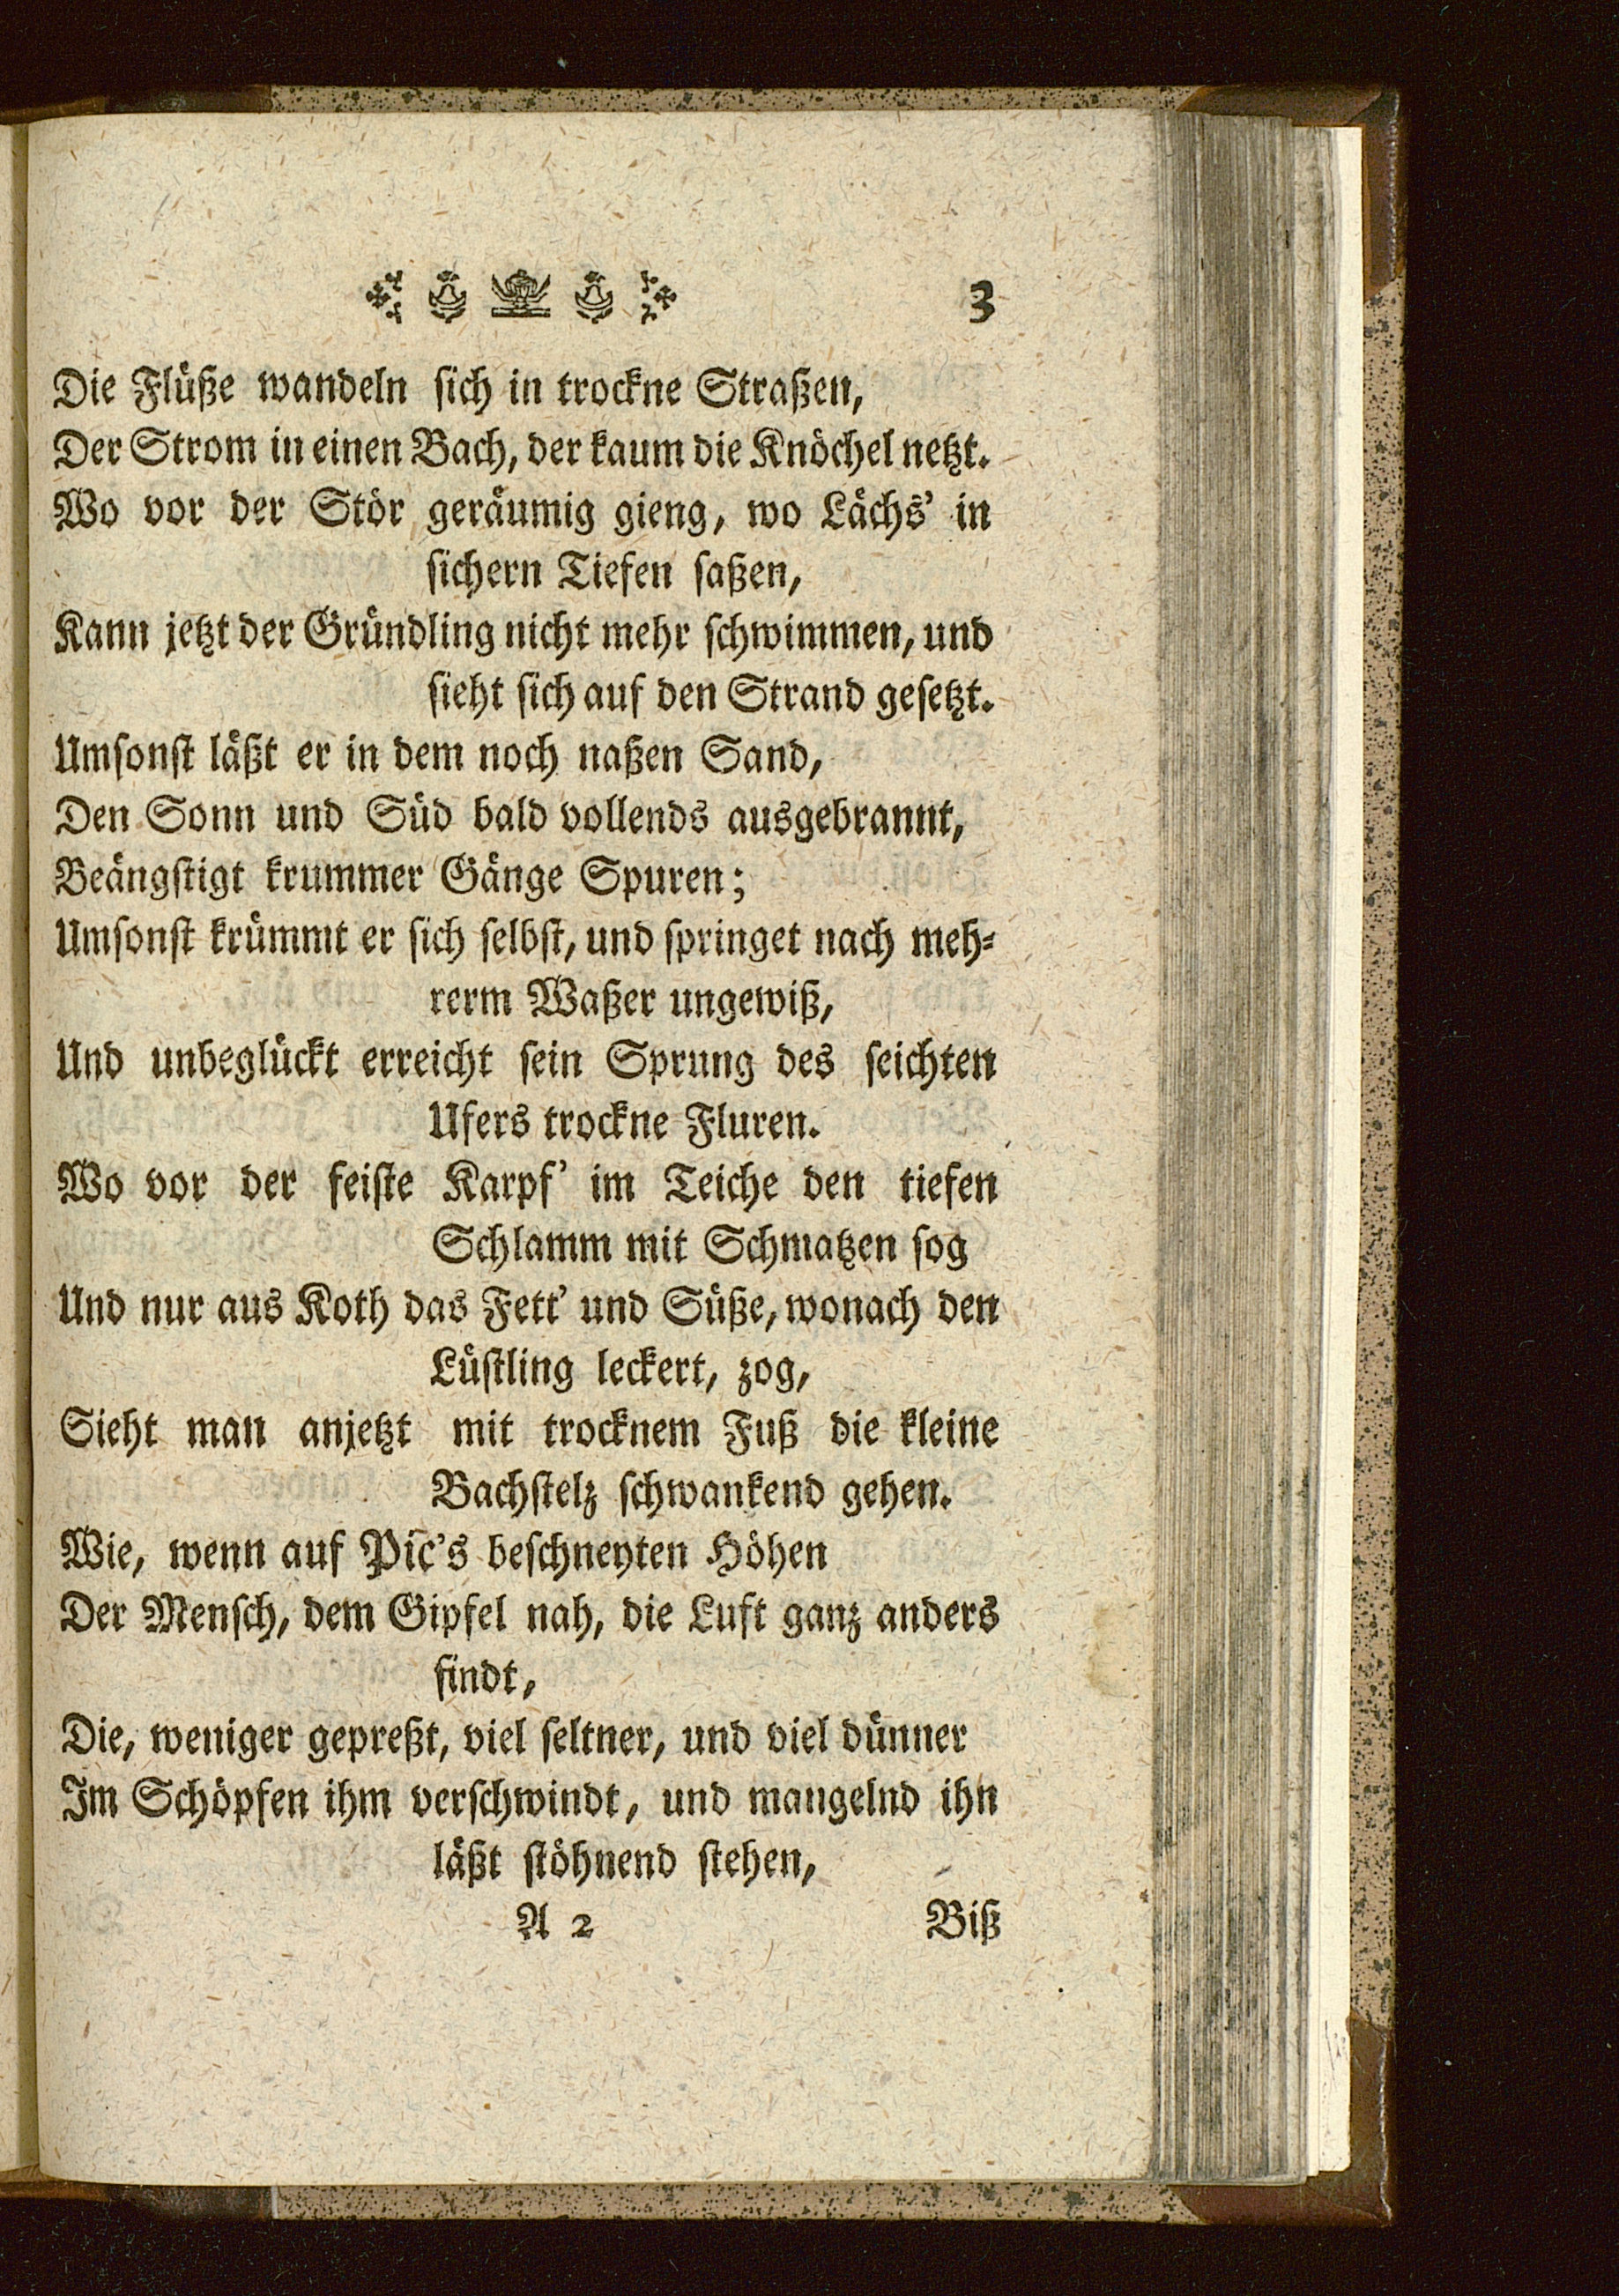 3
Die Flüße wandeln sich in trockne Straßen,
Der Strom in einen Bach, der kaum die Knöchel netzt.
Wo vor der Stör geräumig gieng, wo Lächs' in
sichern Tiefen saßen,
Kann jetzt der Gründling nicht mehr schwimmen, und
sieht sich auf den Strand gesetzt.
Umsonst läßt er in dem noch naßen Sand,
Den Sonn und Süd bald vollends ausgebrannt,
Beängstigt krummer Gänge Spuren;
Umsonst krümmt er sich selbst, und springet nach meh-
rerm Waßer ungewiß,
Und unbeglückt erreicht sein Sprung des seichten
Ufers trockne Fluren.
Wo vor der feiste Karpf' im Teiche den tiefen
Schlamm mit Schmatzen sog
Und nur aus Koth das Fett' und Süße, wonach den
Lüstling leckert, zog,
Sieht man anjetzt mit trocknem Fuß die kleine
Bachstelz schwankend gehen.
Wie, wenn auf Pic's beschneyten Höhen
Der Mensch, dem Gipfel nah, die Luft ganz anders
findt,
Die, weniger gepreßt, viel seltner, und viel dünner
Im Schöpfen ihm verschwindt, und mangelnd ihn
läßt stöhnend stehen,
A 2 Biß